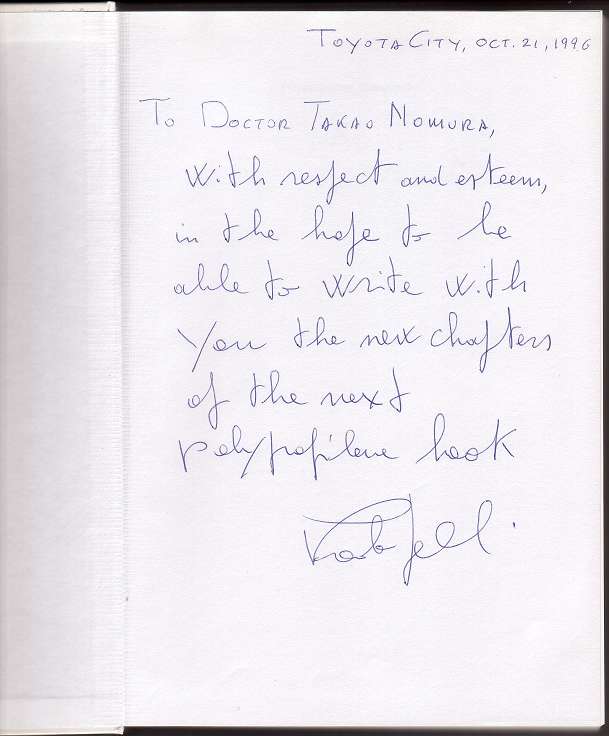 TOYOTA CITY, OCT. 21, 1996
To DOCTOR TAKAO NOMURA,
With respect and esteem,
in the hope to be
able to write with
You the new chapters
of the next
polypropilene book